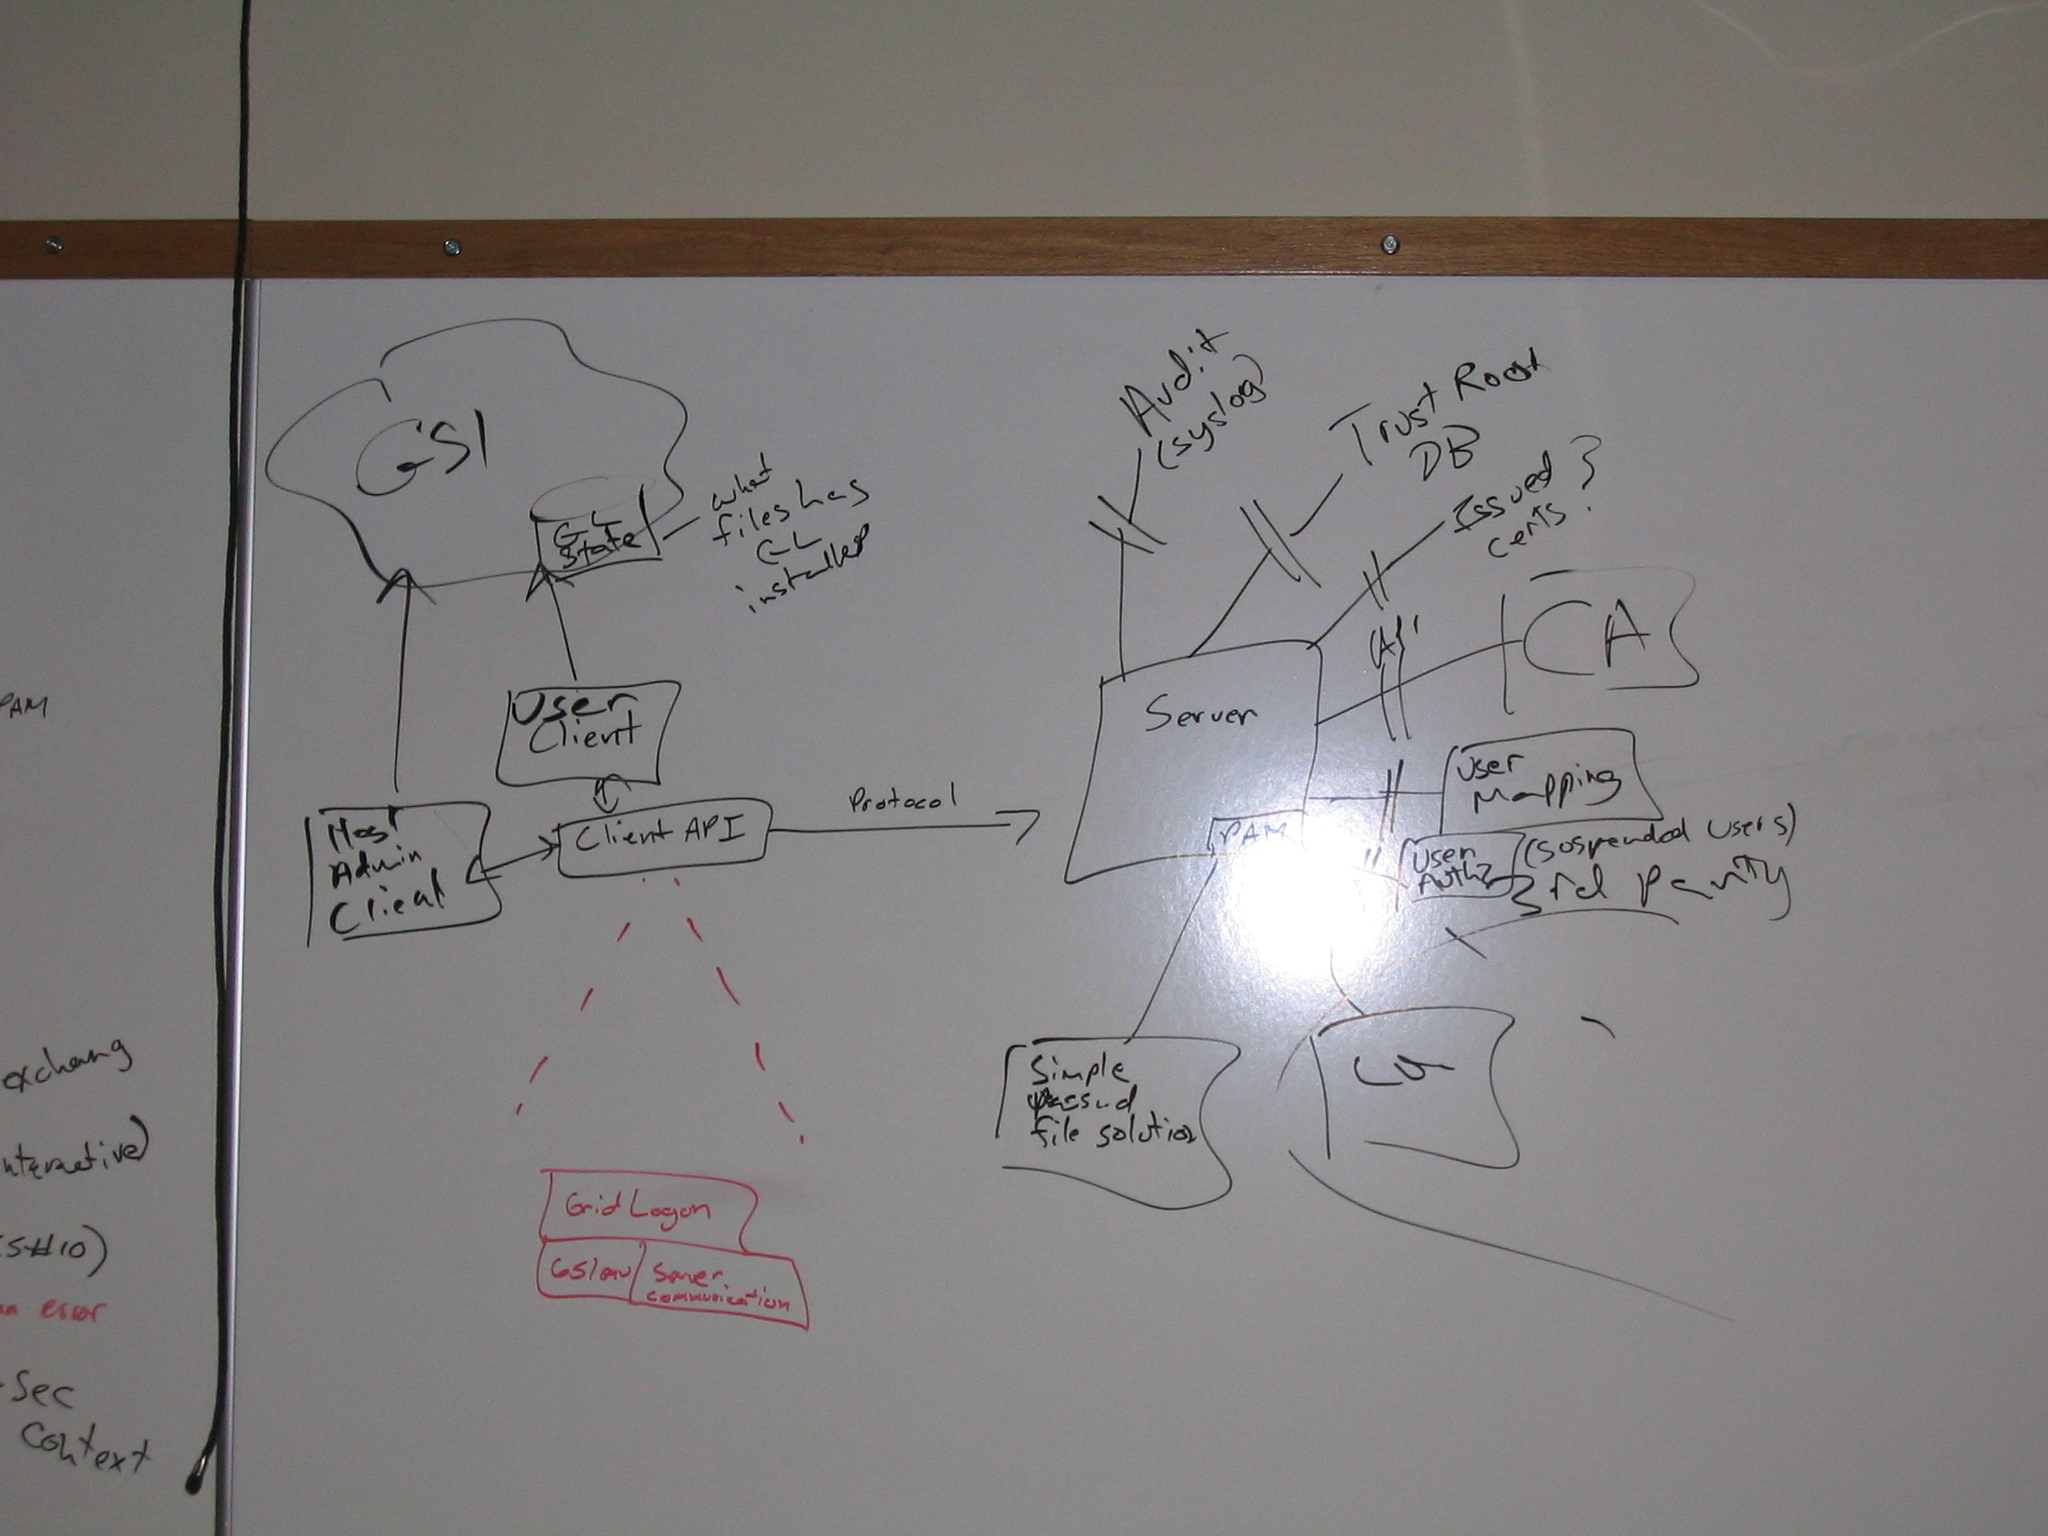 PAM
exchang
nteractive)
S#10)
error
Sec
Context
GSI
GL
State
what
files has
GL
installed
User
Client
Host
Admin
Client
Client API
Protocol
Grid Logon
Server
communication
Audit
(syslog)
Trust Root
DB
Issued
certs?
CA
Server
PAM
User
Mapping
User
Authz
(suspended users)
3rd party
Simple
passwd
file solution